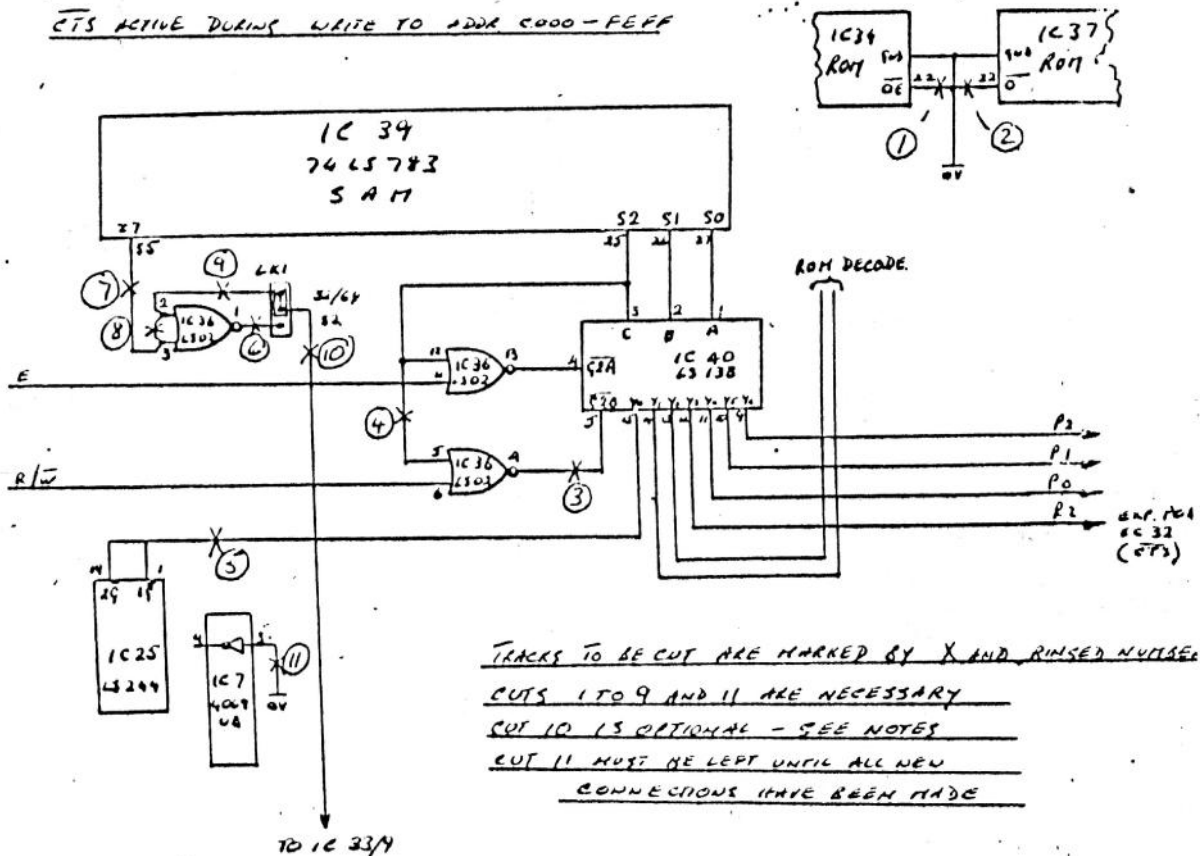 CTS ACTIVE DURING WRITE TO ADDR C000 - FEFF
IC34
ROM
GND
OE
22
IC37
ROM
GND
22
1
2
0V
IC 39
74 LS 783
SAM
Z7
35
S2
S1
S0
25
26
27
7
9
LK1
8
2
IC36
LS02
1
3
6
32/64
10
ROM DECODE
3
2
1
C
B
A
IC 40
LS 138
E
12
IC36
LS02
13
4
G2A
G2B
5
4
5
IC36
LS02
6
3
R/W
P2
P1
P0
R2
EXP. PCA
(CTS)
5
19
1
2G
1G
IC25
LS244
IC7
4069
UB
3
11
0V
TRACKS TO BE CUT ARE MARKED BY X AND RINGED NUMBER
CUTS 1 TO 9 AND 11 ARE NECESSARY
CUT 10 IS OPTIONAL - SEE NOTES
CUT 11 MUST BE LEFT UNTIL ALL NEW
CONNECTIONS HAVE BEEN MADE
TO IC 33/9